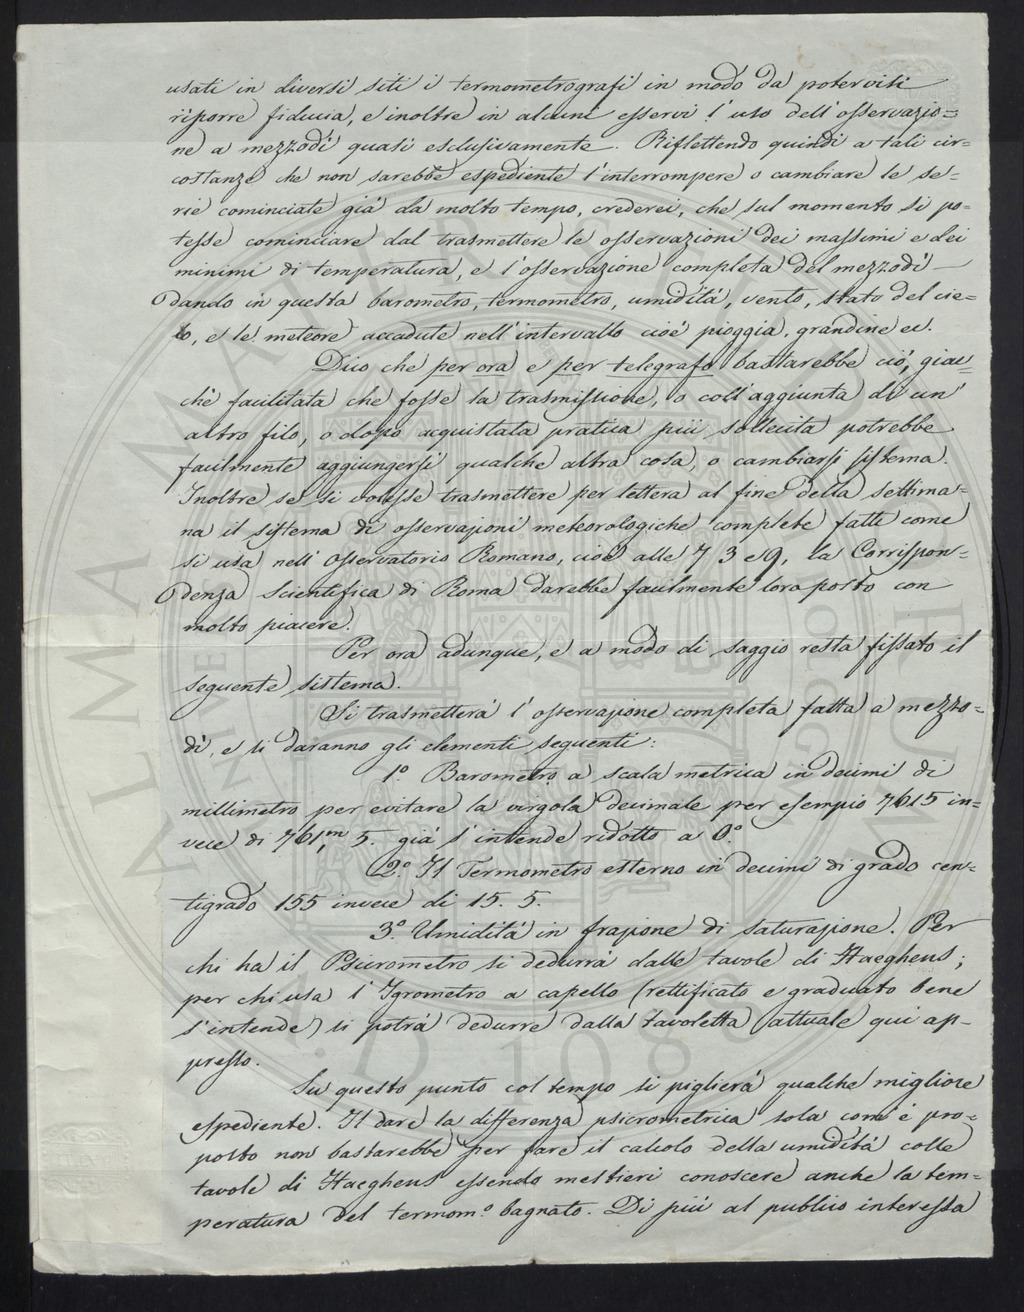 usati in diversi siti i termometrografi in modo da potervisi
riporre fiducia, e inoltre in alcuni esservi l'uso dell'osservazio=
ne a mezzodì quasi esclusivamente. Riflettendo quindi a tali cir=
costanze che non sarebbe espediente l'interrompere o cambiare le se=
rie cominciate già da molto tempo, crederei, che sul momento si po=
tesse cominciare dal trasmettere le osservazioni dei massimi e dei
minimi di temperatura, e l'osservazione completa del mezzodì —
dando in questa barometro, termometro, umidità, vento, stato del cie=
lo, e le meteore accadute nell'intervallo cioè pioggia, grandine ec.
Dico che per ora e per telegrafo bastarebbe ciò, giac=
chè facilitata che fosse la trasmissione, o coll'aggiunta di un'
altro filo, o dopo acquistata pratica più sollecita potrebbe
facilmente aggiungersi qualche altra cosa, o cambiarsi sistema.
Inoltre se si volesse trasmettere per lettera al fine della settima=
na il sistema di osservazioni meteorologiche complete fatte come
si usa nell'Osservatorio Romano, cioè alle 7 3 e 9, la Corrispon=
denza Scientifica di Roma darebbe facilmente loro posto con
molto piacere.
Per ora adunque, e a modo di saggio resta fissato il
seguente sistema.
Si trasmetterà l'osservazione completa fatta a mezzo=
dì, e si daranno gli elementi seguenti:
1.º Barometro a scala metrica in decimi di
millimetro per evitare la virgola decimale per esempio 7615 in=
vece di 761,ᵐ 5. già s'intende ridotto a 0.º
2.º Il Termometro esterno in decimi di grado cen=
tigrado 155 invece di 15. 5.
3.º Umidità in frazione di saturazione. Per
chi ha il Psicrometro si dedurrà dalle tavole di Haeghens;
per chi usa l'Igrometro a capello (rettificato e graduato bene
s'intende) si potrà dedurre dalla tavoletta attuale qui ap=
presso.
Su questo punto col tempo si piglierà qualche migliore
espediente. Il dare la differenza psicrometrica sola com'è pro=
posto non bastarebbe per fare il calcolo della umidità colle
tavole di Haeghens essendo mestieri conoscere anche la tem=
peratura del termom.º bagnato. Di più al publico interessa
ALMA MATER STUDIORUM
UNIVERSITAS BONONIENSIS
A.D. 1088